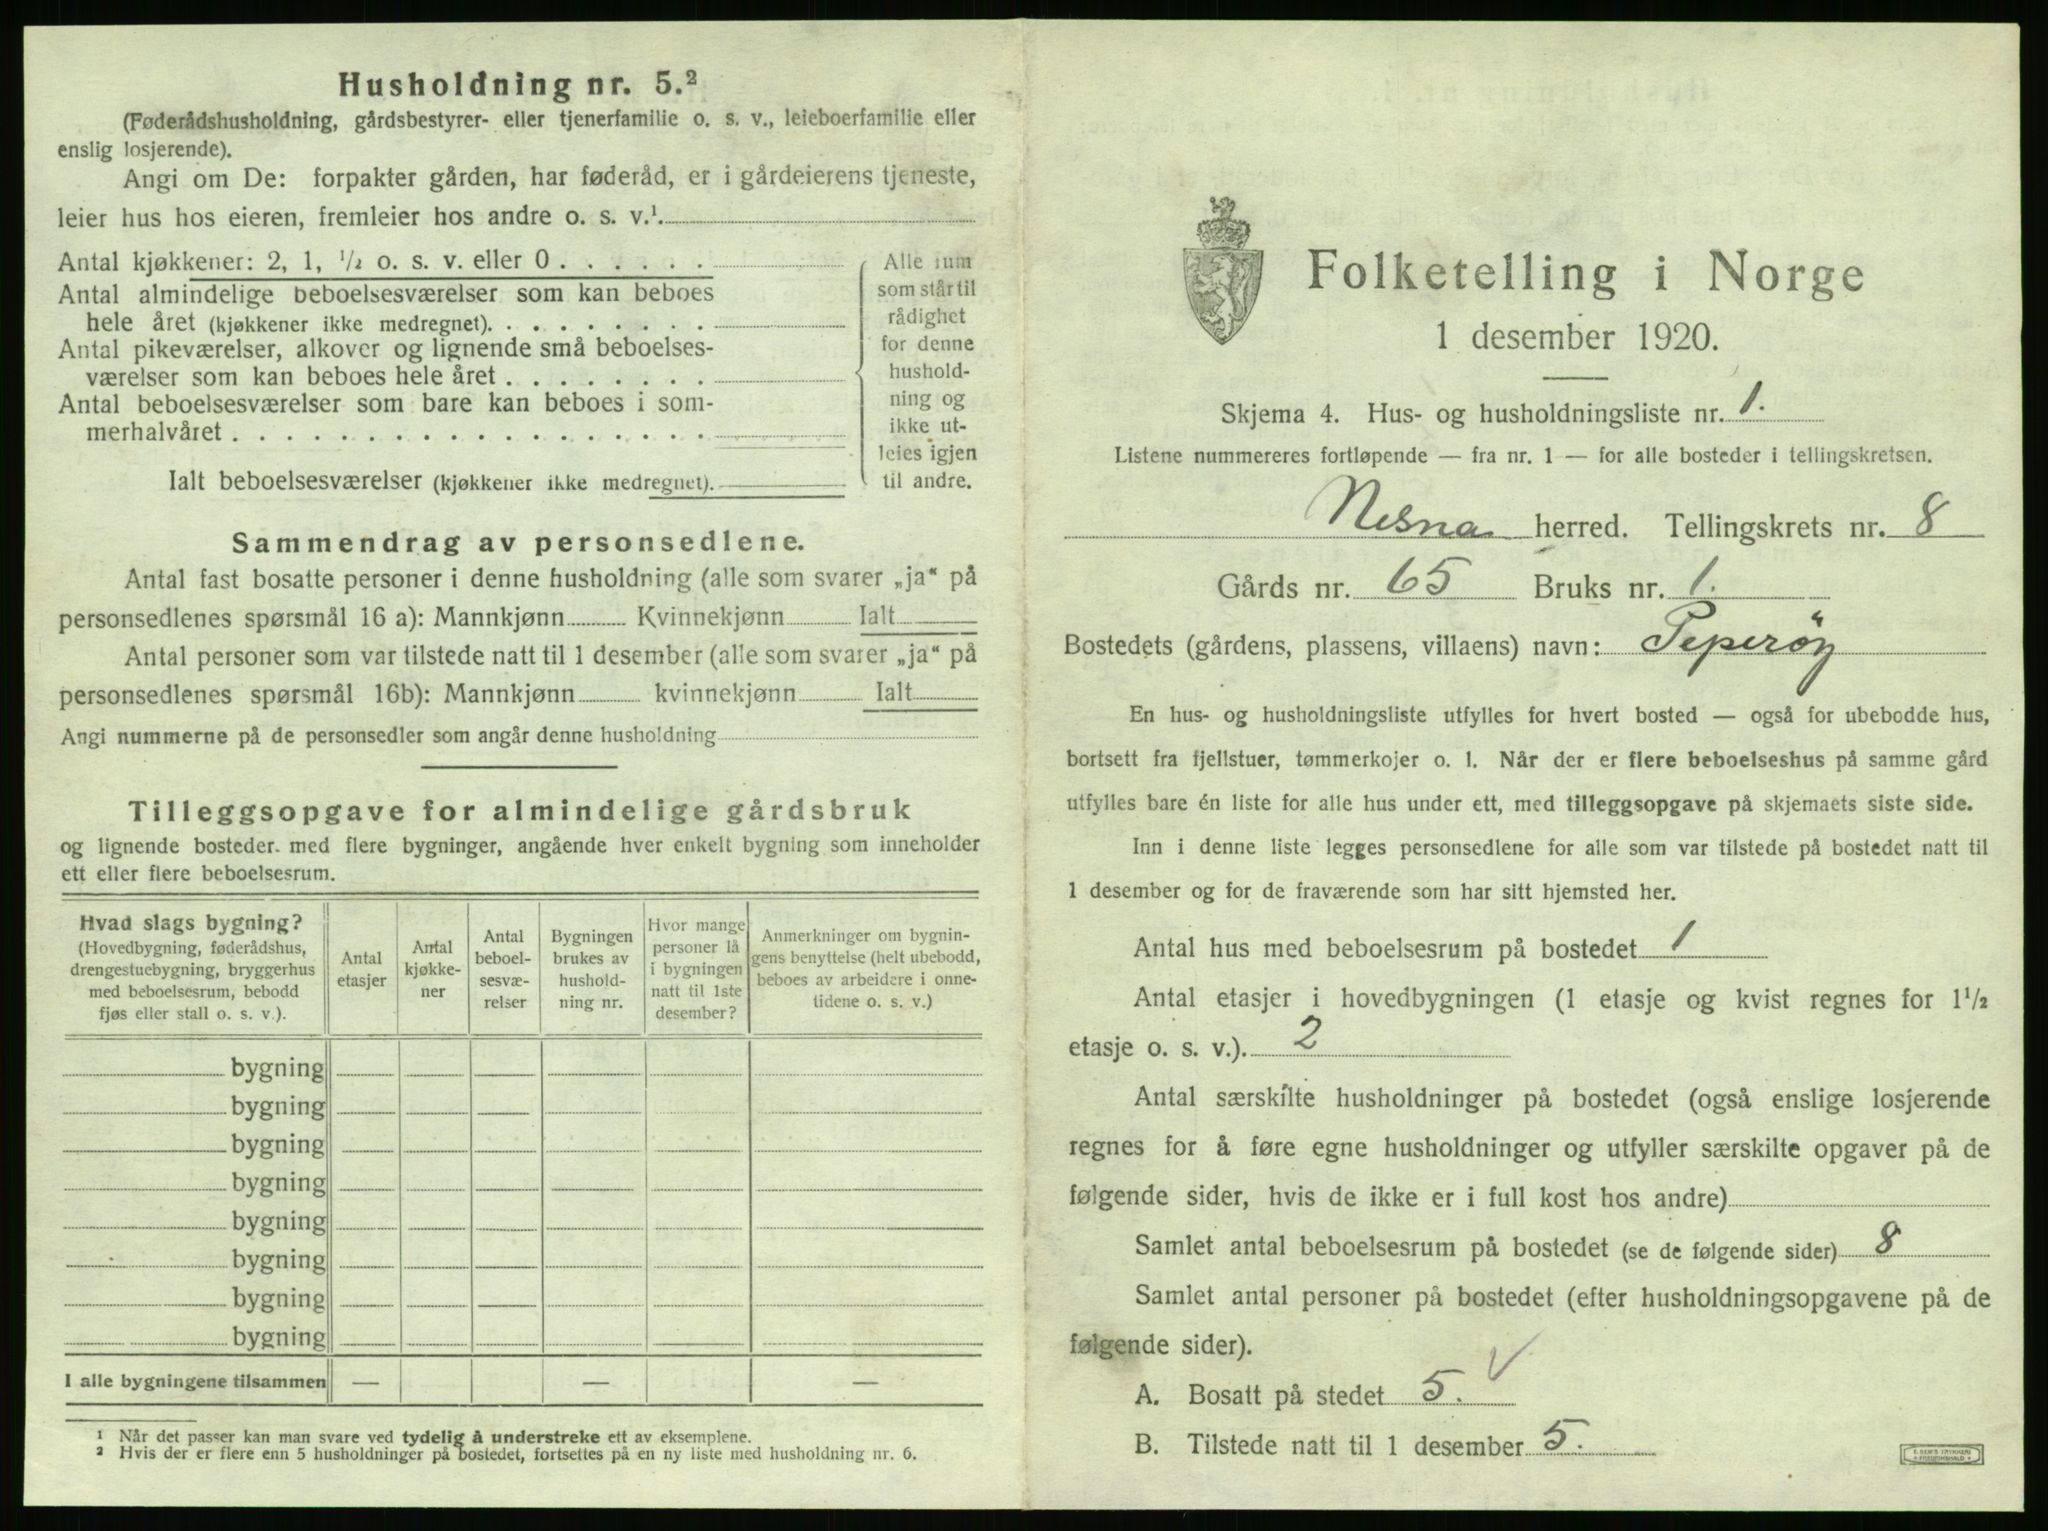 Husholdning nr. 5.²
(Føderådshusholdning, gårdsbestyrer- eller tjenerfamilie o. s. v., leieboerfamilie eller
enslig losjerende).
Angi om De: forpakter gården, har føderåd, er i gårdeierens tjeneste,
leier hus hos eieren, fremleier hos andre o. s. v.¹
Antal kjøkkener: 2, 1, ½ o. s. v. eller 0 . . . . . .
Antal almindelige beboelsesværelser som kan beboes
hele året (kjøkkener ikke medregnet). . . . . . . . .
Antal pikeværelser, alkover og lignende små beboelses-
værelser som kan beboes hele året . . . . . . . .
Antal beboelsesværelser som bare kan beboes i som-
merhalvåret . . . . . . . . . . . . . . . . . .
Ialt beboelsesværelser (kjøkkener ikke medregnet).
Alle rum
som står til
rådighet
for denne
hushold-
ning og
ikke ut-
leies igjen
til andre.
Sammendrag av personsedlene.
Antal fast bosatte personer i denne husholdning (alle som svarer „ja“ på
personsedlenes spørsmål 16 a): Mannkjønn Kvinnekjønn Ialt
Antal personer som var tilstede natt til 1 desember (alle som svarer „ja“ på
personsedlenes spørsmål 16b): Mannkjønn kvinnekjønn Ialt
Angi nummerne på de personsedler som angår denne husholdning
Tilleggsopgave for almindelige gårdsbruk
og lignende bosteder med flere bygninger, angående hver enkelt bygning som inneholder
ett eller flere beboelsesrum.
Hvad slags bygning?
(Hovedbygning, føderådshus,
drengestuebygning, bryggerhus
med beboelsesrum, bebodd
fjøs eller stall o. s. v.).
Antal
etasjer
Antal
kjøkke-
ner
Antal
beboel-
sesvæ-
relser
Bygningen
brukes av
hushold-
ning nr.
Hvor mange
personer lå
i bygningen
natt til 1ste
desember?
Anmerkninger om bygnin-
gens benyttelse (helt ubebodd,
beboes av arbeidere i onne-
tidene o. s. v.)
bygning
bygning
bygning
bygning
bygning
bygning
bygning
bygning
I alle bygningene tilsammen — — —
¹ Når det passer kan man svare ved tydelig å understreke ett av eksemplene.
² Hvis der er flere enn 5 husholdninger på bostedet, fortsettes på en ny liste med husholdning nr. 6.
Folketelling i Norge
1 desember 1920.
Skjema 4. Hus- og husholdningsliste nr. 1.
Listene nummereres fortløpende — fra nr. 1 — for alle bosteder i tellingskretsen.
Nesna herred. Tellingskrets nr. 8
Gårds nr. 65 Bruks nr. 1.
Bostedets (gårdens, plassens, villaens) navn: Peperöy
En hus- og husholdningsliste utfylles for hvert bosted — også for ubebodde hus,
bortsett fra fjellstuer, tømmerkojer o. l. Når der er flere beboelseshus på samme gård
utfylles bare én liste for alle hus under ett, med tilleggsopgave på skjemaets siste side.
Inn i denne liste legges personsedlene for alle som var tilstede på bostedet natt til
1 desember og for de fraværende som har sitt hjemsted her.
Antal hus med beboelsesrum på bostedet 1
Antal etasjer i hovedbygningen (1 etasje og kvist regnes for 1½
etasje o. s. v.). 2
Antal særskilte husholdninger på bostedet (også enslige losjerende
regnes for å føre egne husholdninger og utfyller særskilte opgaver på de
følgende sider, hvis de ikke er i full kost hos andre)
Samlet antal beboelsesrum på bostedet (se de følgende sider) 8
Samlet antal personer på bostedet (efter husholdningsopgavene på de
følgende sider).
A. Bosatt på stedet 5. ✓
B. Tilstede natt til 1 desember 5.